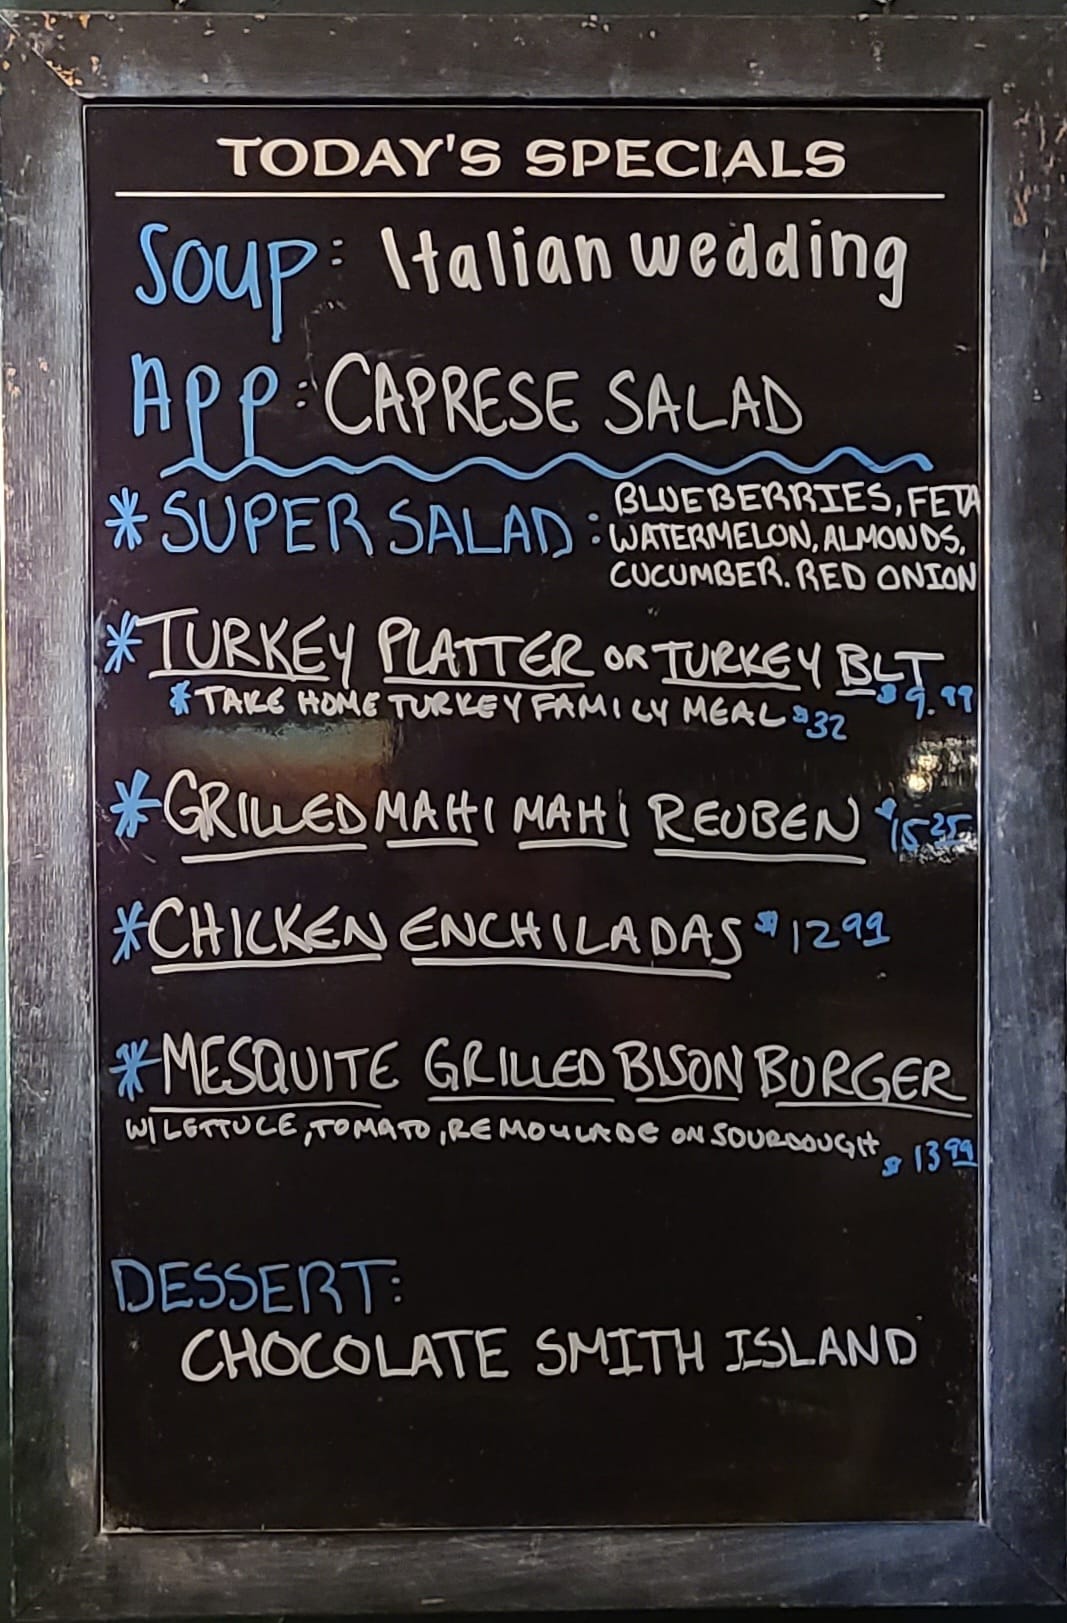 TODAY'S SPECIALS
Soup: Italian wedding
App: CAPRESE SALAD
* SUPER SALAD: BLUEBERRIES, FETA
WATERMELON, ALMONDS,
CUCUMBER. RED ONION
* TURKEY PLATTER OR TURKEY BLT $9.99
* TAKE HOME TURKEY FAMILY MEAL $32
* GRILLED MAHI MAHI REUBEN $15 25
* CHICKEN ENCHILADAS $12 99
* MESQUITE GRILLED BISON BURGER
W/ LETTUCE, TOMATO, REMOULADE ON SOURDOUGH $13 99
DESSERT:
CHOCOLATE SMITH ISLAND